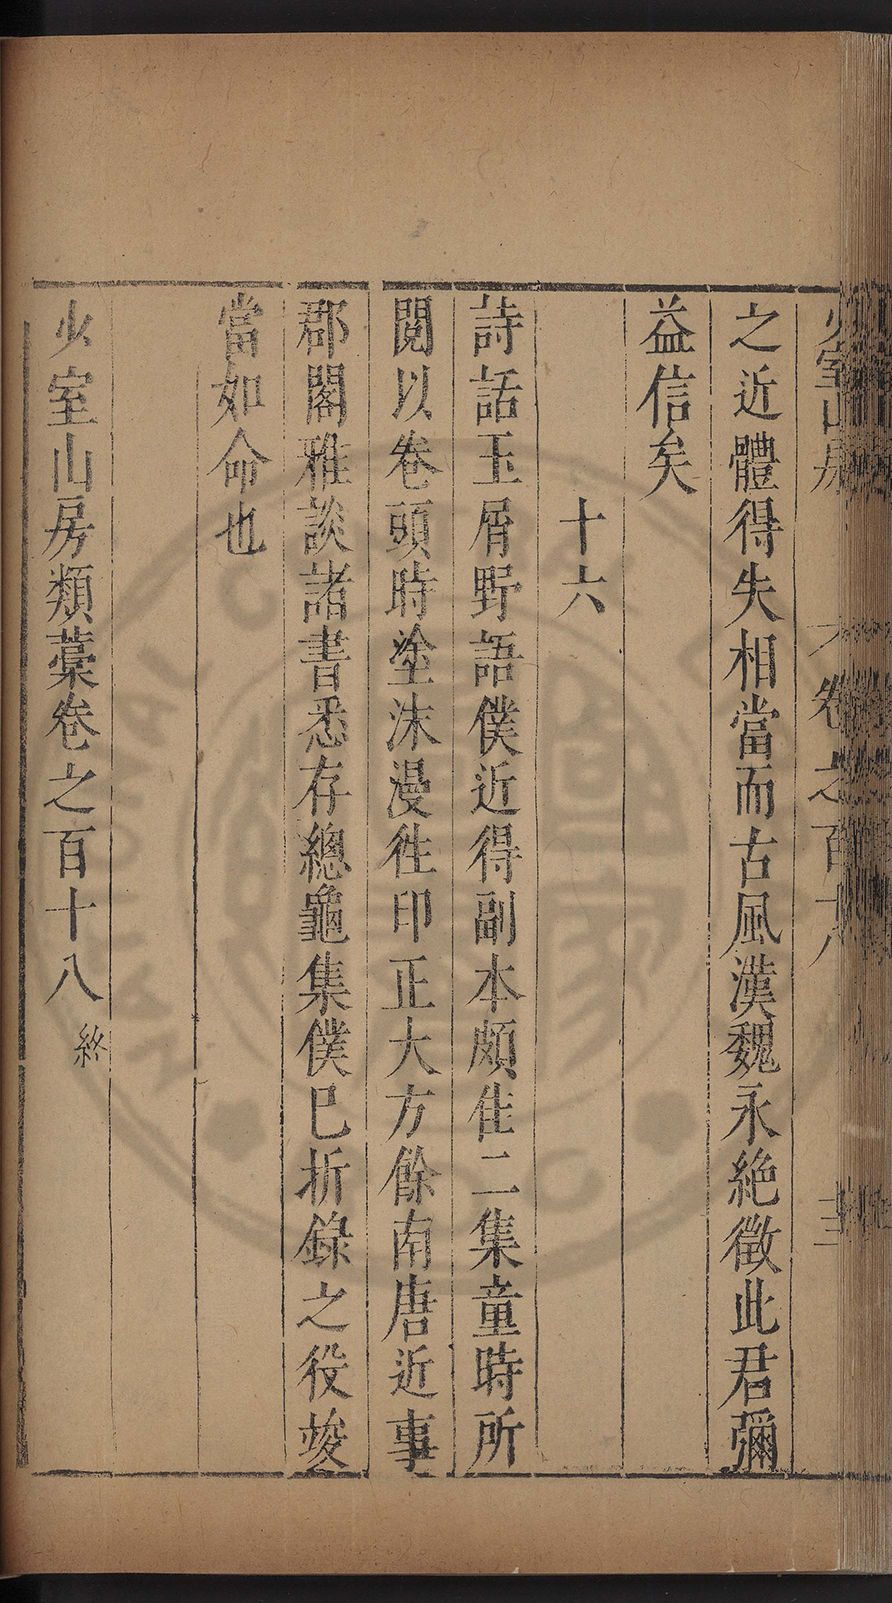 少室山房 卷之百十八
之近體得失相當而古風漢魏永絶徵此君彌
益信矣
十六
詩話玉屑野語僕近得副本頗佳二集童時所
閱以卷頭時塗沫漫徃印正大方餘南唐近事
郡閣雅談諸書悉存總龜集僕已折錄之役竣
當如命也
少室山房類藁卷之百十八終